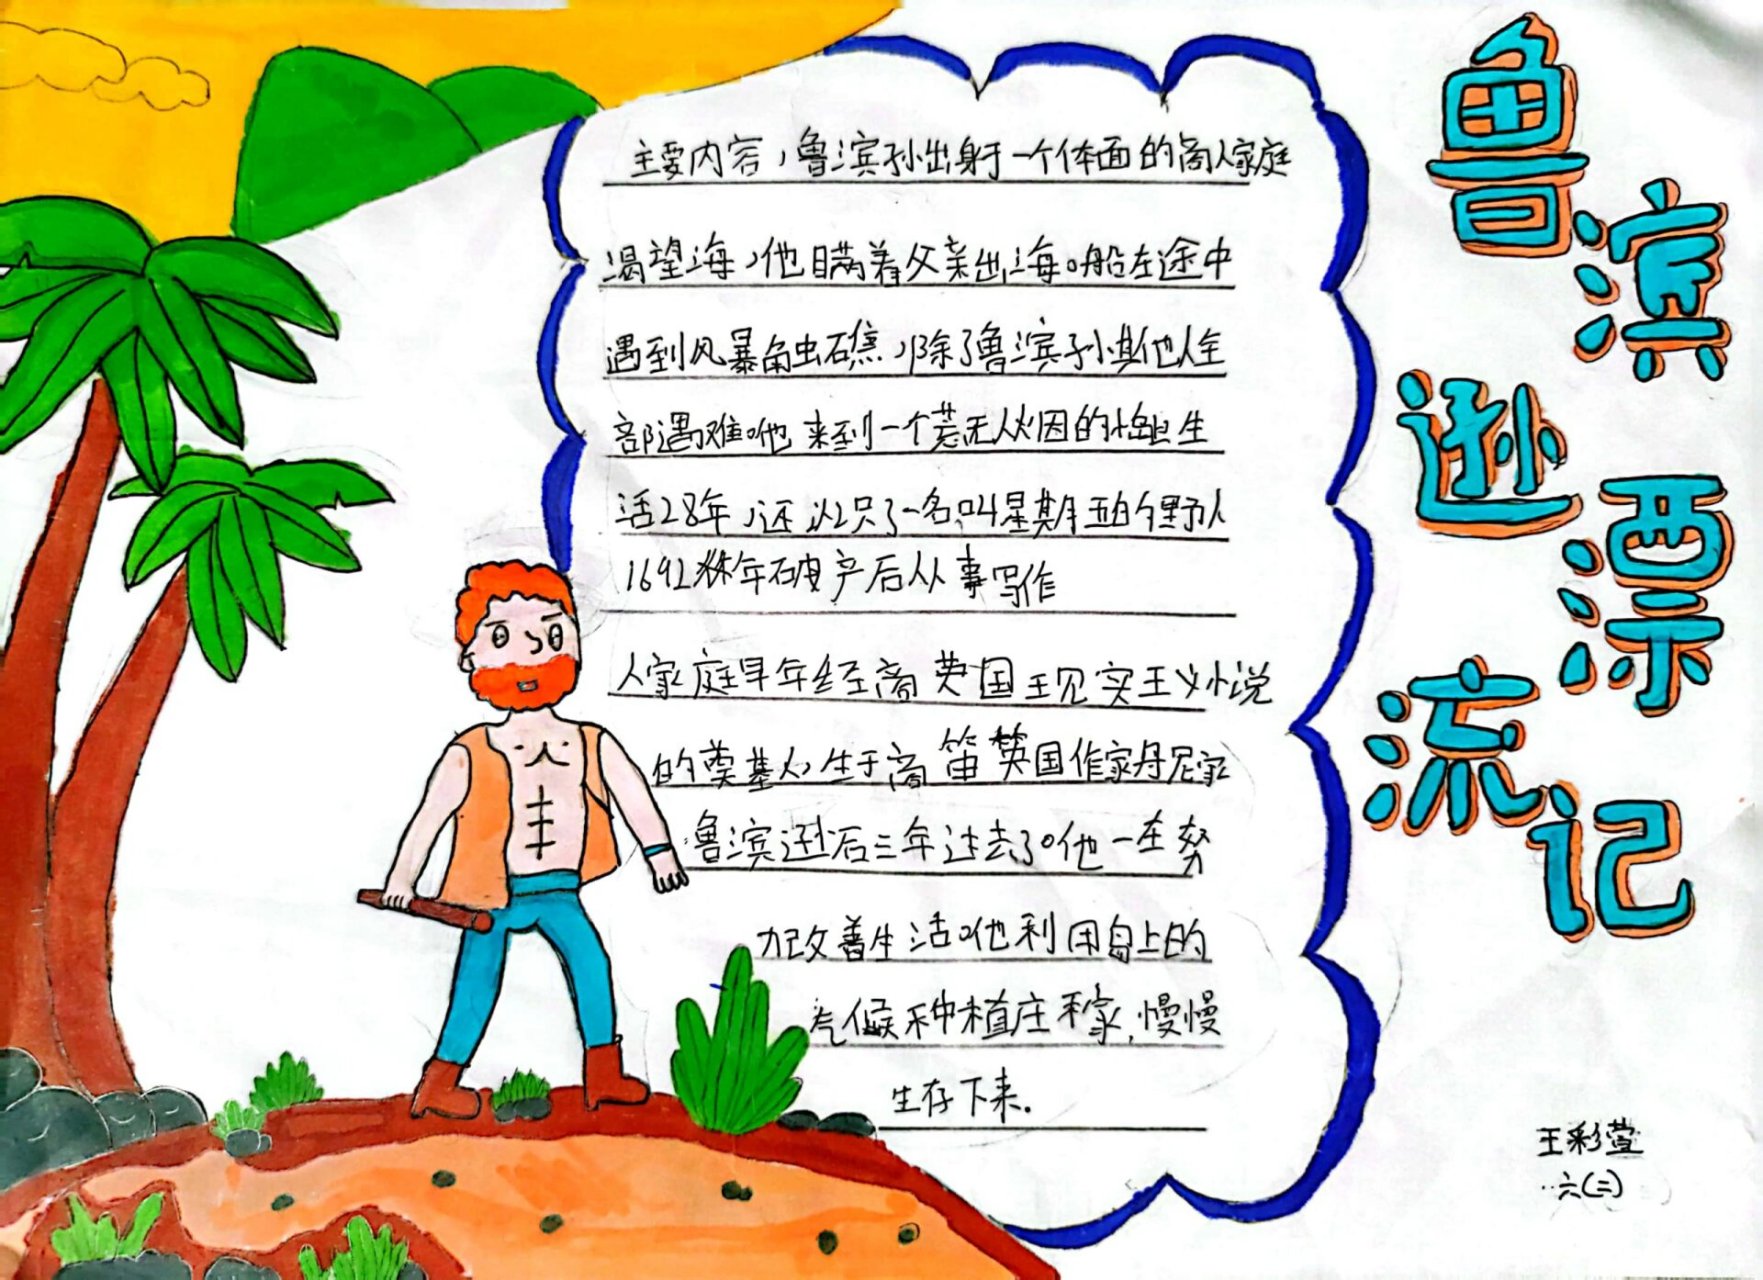 鲁滨逊漂流记
主要内容，鲁滨孙出身于一个体面的商人家庭
渴望海，他瞒着父亲出海。船在途中
遇到风暴触礁，除了鲁滨孙其他人全
部遇难。他来到一个荒无人烟的岛生
活28年，还认识了一名叫星期五的野人
1692年破产后从事写作
人家庭早年经商英国现实主义小说
的奠基人，生于商 英国作家丹尼家
鲁滨逊后三年过去了。他一在努
力改善生活。他利用岛上的
气候种植庄稼，慢慢
生存下来.
王彩萱
六(三)